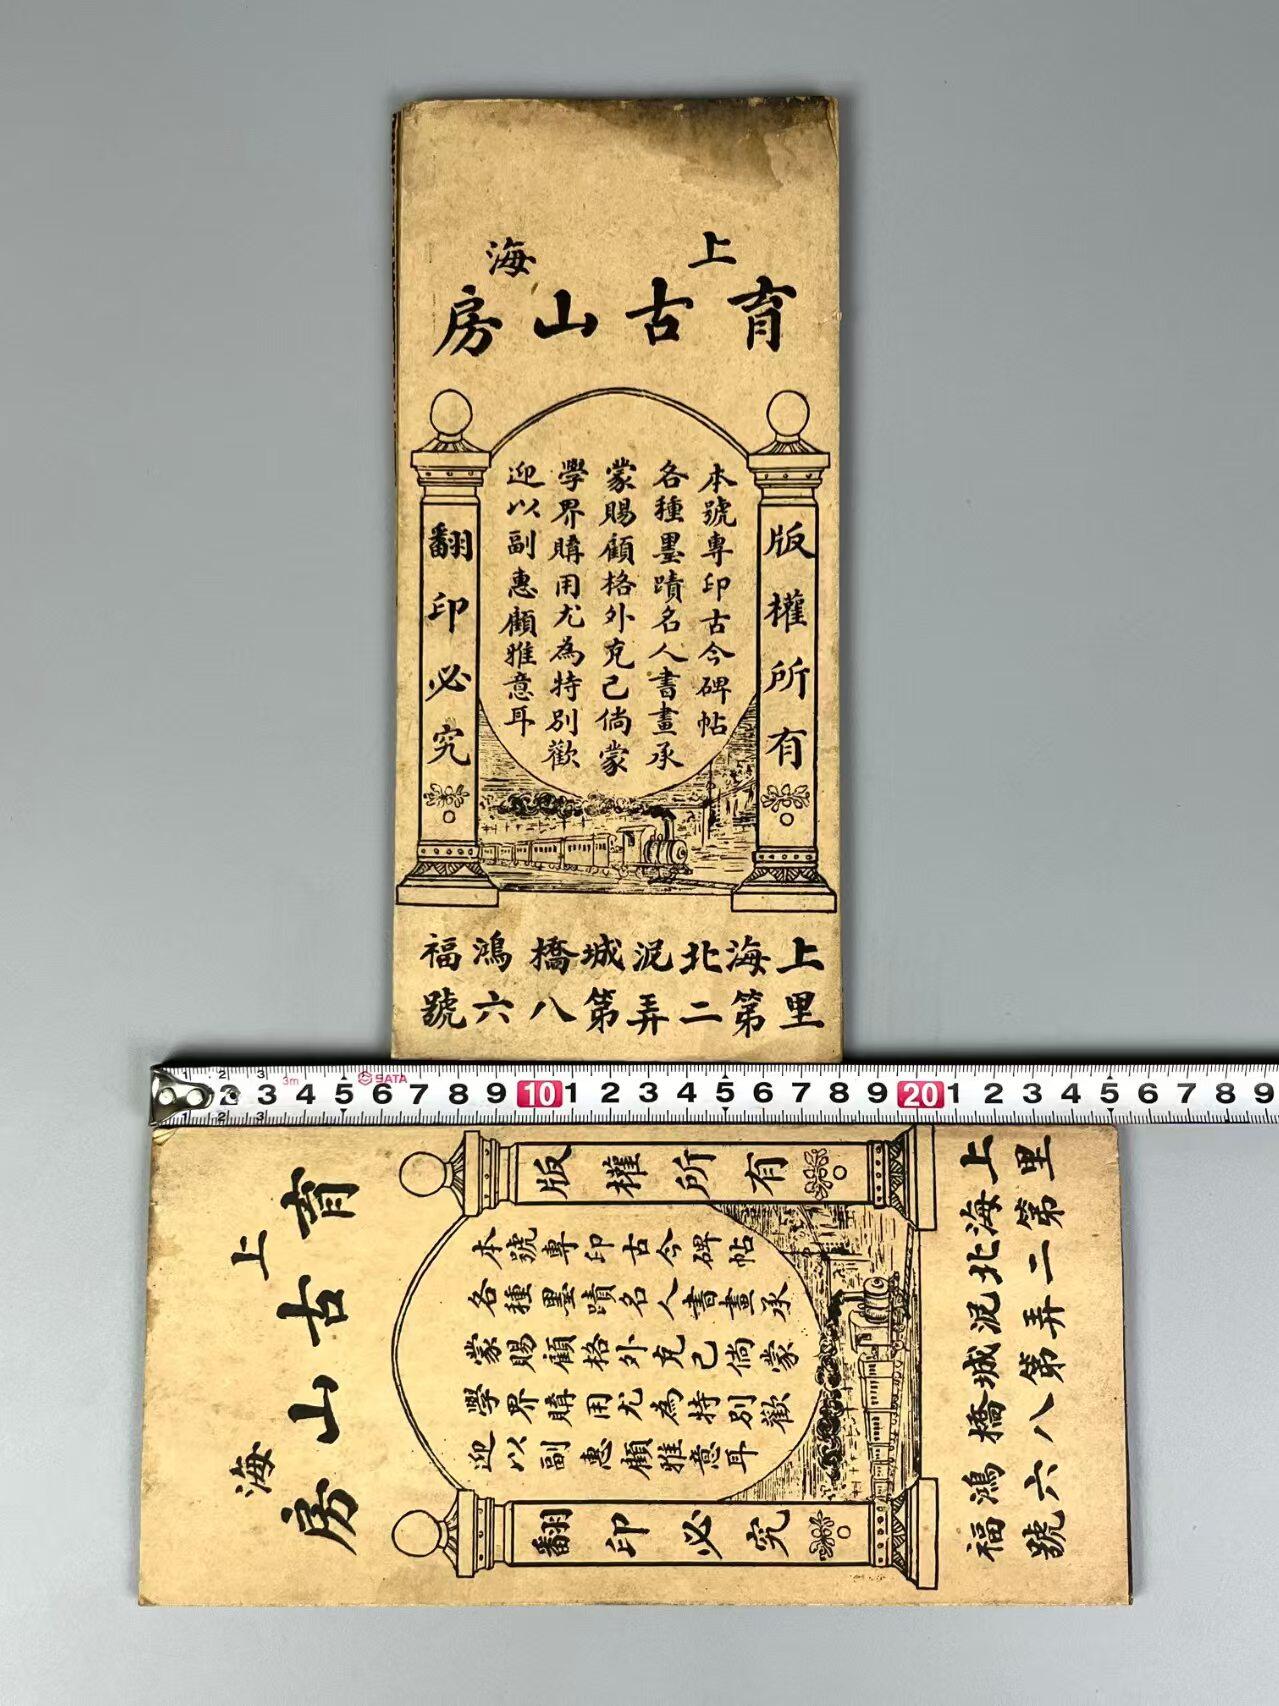 上海
育古山房
版權所有
本號專印古今碑帖
各種墨蹟名人書畫承
蒙賜顧格外克己倘蒙
學界購用尤為特別歡
迎以副惠顧雅意耳
翻印必究
上海北泥城橋鴻福
里第二弄第八六號
1 2 3 3m 2 3 4 5 SATA 6 7 8 9 10 1 2 3 4 5 6 7 8 9 20 1 2 3 4 5 6 7 8 9
1 2 3
上海
育古山房
版權所有
本號專印古今碑帖
各種墨蹟名人書畫承
蒙賜顧格外克己倘蒙
學界購用尤為特別歡
迎以副惠顧雅意耳
翻印必究
上海北泥城橋鴻福
里第二弄第八六號